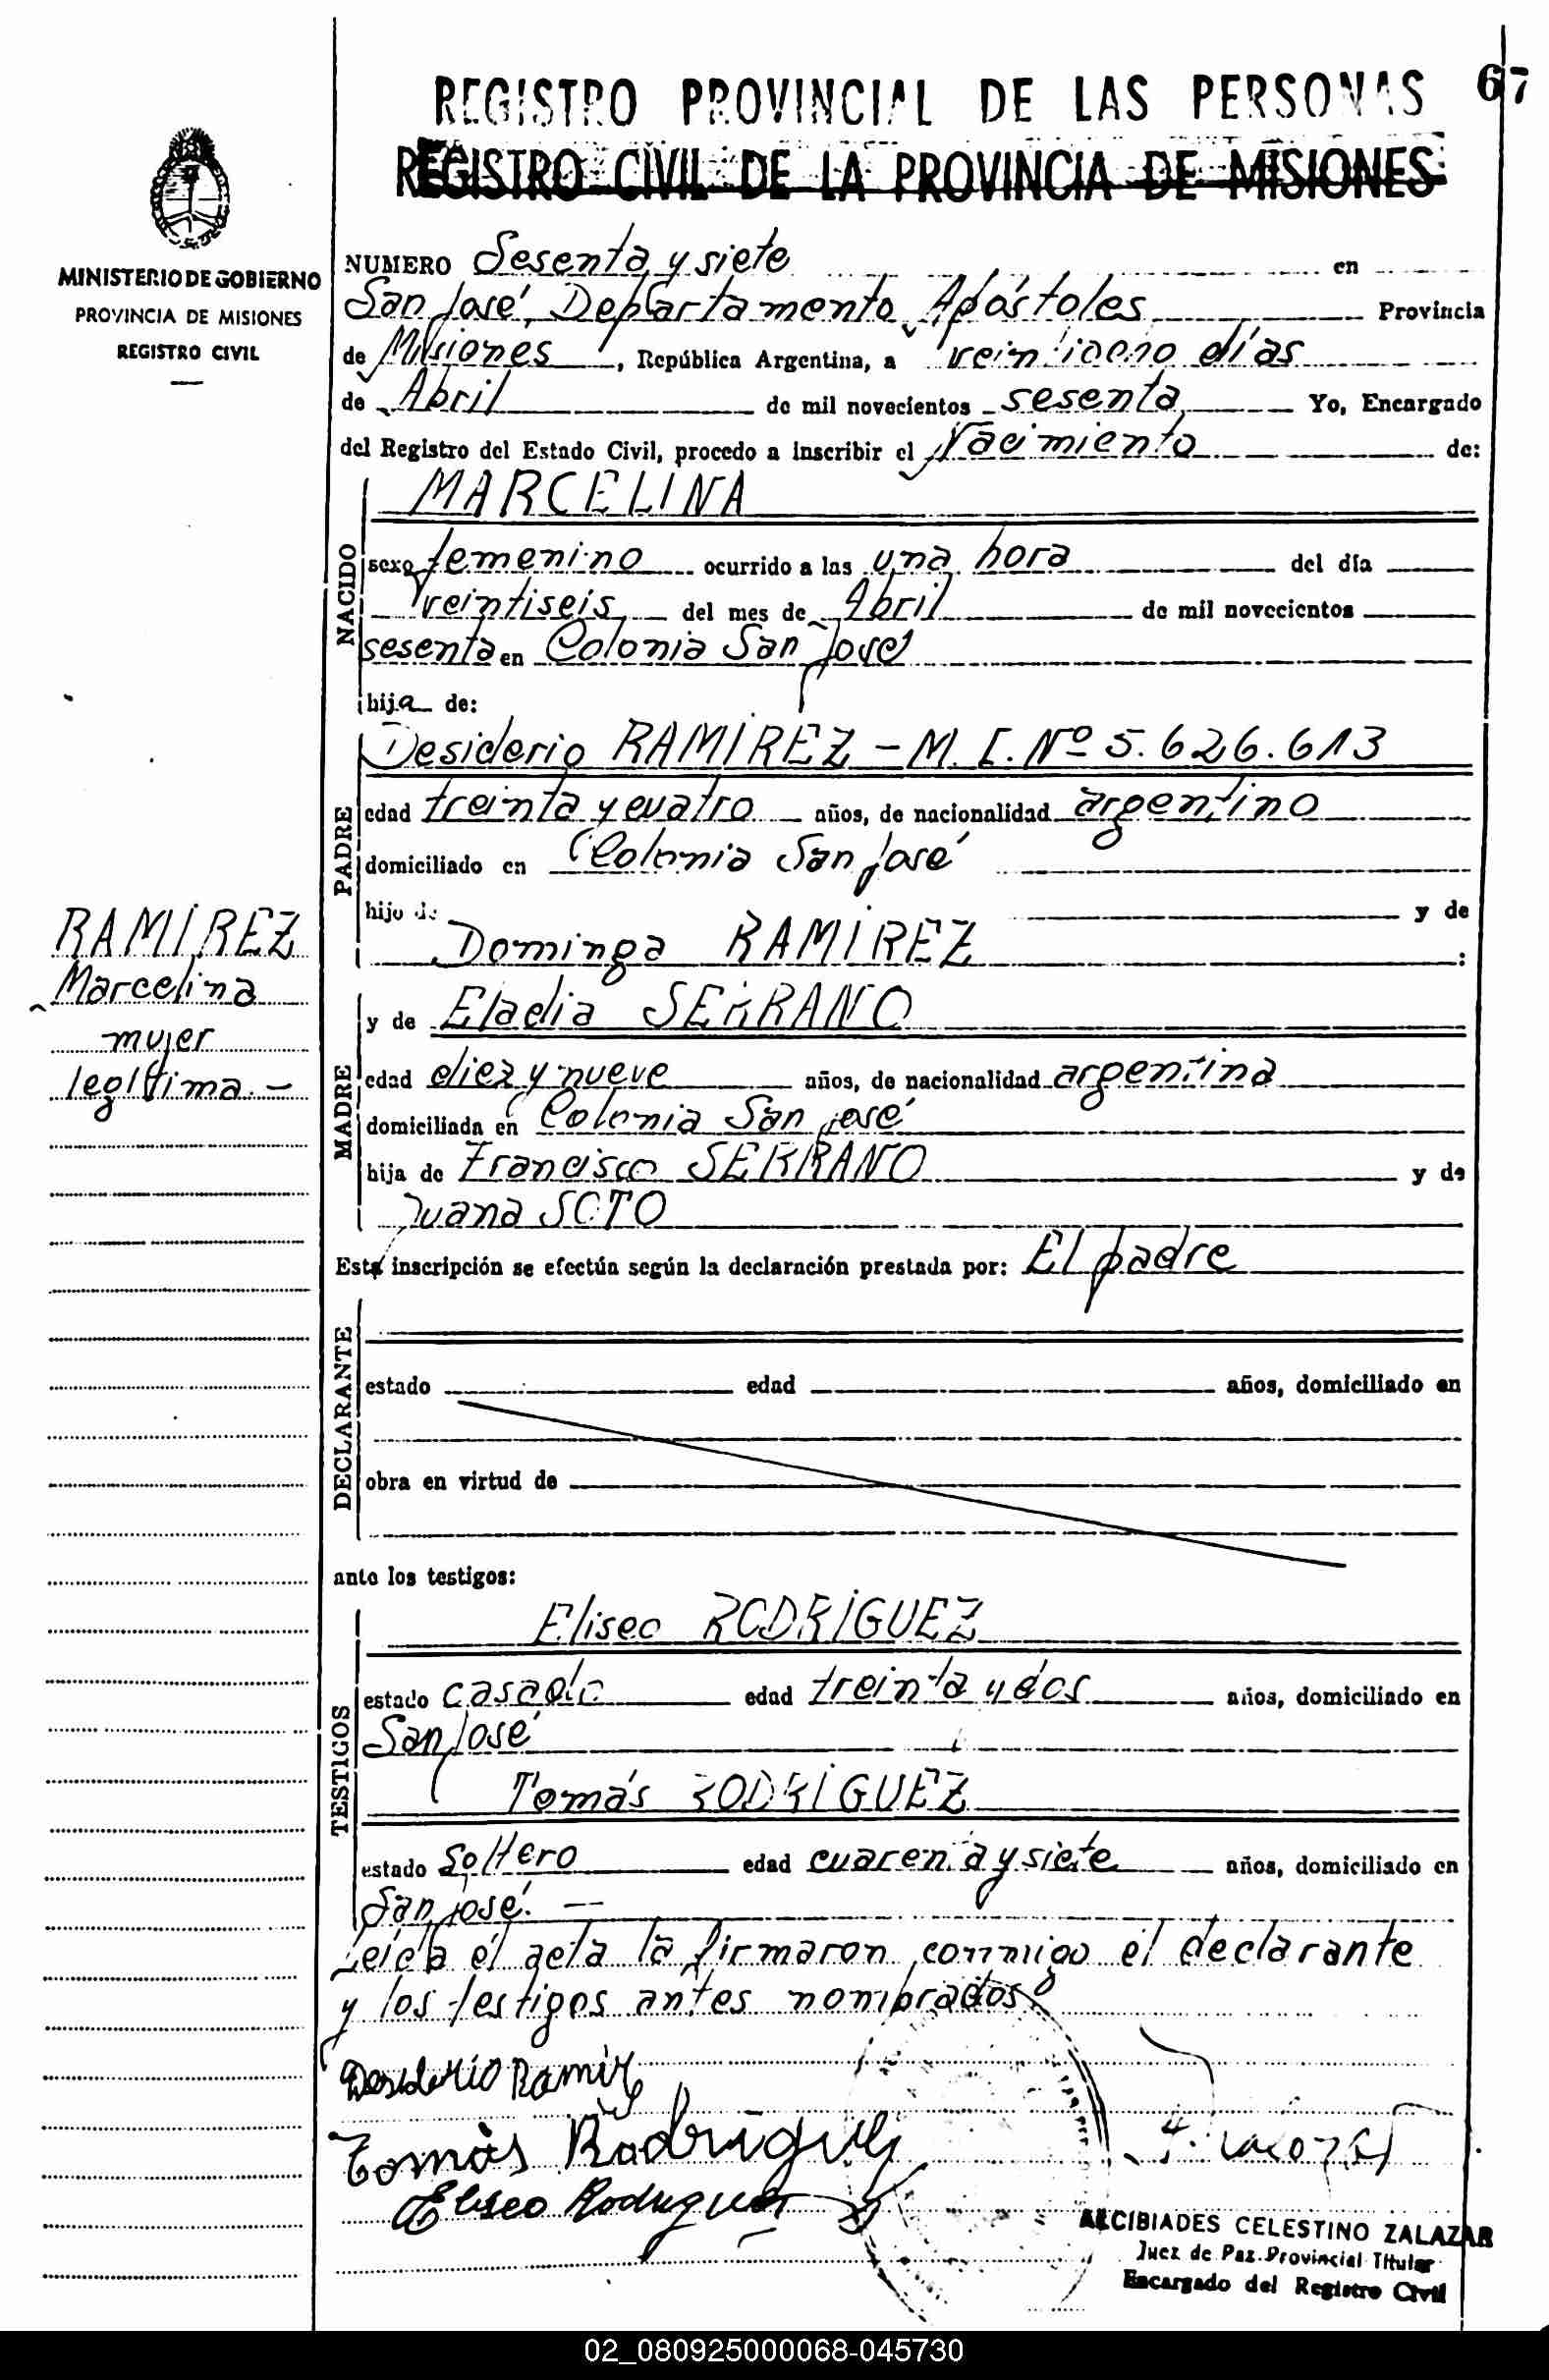 67
REGISTRO PROVINCIAL DE LAS PERSONAS
REGISTRO CIVIL DE LA PROVINCIA DE MISIONES
MINISTERIO DE GOBIERNO
PROVINCIA DE MISIONES
REGISTRO CIVIL
NUMERO Sesenta y siete en
San José, Departamento Apóstoles Provincia
de Misiones, República Argentina, a veintiocho días
de Abril de mil novecientos sesenta Yo, Encargado
del Registro del Estado Civil, procedo a inscribir el Nacimiento de:
NACIDO
MARCELINA
sexo femenino ocurrido a las una hora del día
veintiseis del mes de Abril de mil novecientos
sesenta en Colonia San José
hija de:
PADRE
Desiderio RAMÍREZ - M. I. Nº 5.626.613
edad treinta y cuatro años, de nacionalidad argentino
domiciliado en Colonia San José
hijo de y de
Dominga RAMIREZ :
RAMÍREZ
Marcelina
mujer
legítima.-
MADRE
y de Eladia SERRANO
edad diez y nueve años, de nacionalidad argentina
domiciliada en Colonia San José
hija de Francisco SERRANO y de
Juana SOTO
Esta inscripción se efectúa según la declaración prestada por: El padre
DECLARANTE
estado edad años, domiciliado en
obra en virtud de
ante los testigos:
TESTIGOS
Eliseo RODRÍGUEZ
estado casado edad treinta y dos años, domiciliado en
San José
Tomás RODRÍGUEZ
estado Soltero edad cuarenta y siete años, domiciliado en
San José. -
Leída el acta la firmaron conmigo el declarante
y los testigos antes nombrados
Desiderio Ramir
Tomás Rodriguez
Eliseo Rodriguez
ALCIBIADES CELESTINO ZALAZAR
Juez de Paz Provincial Titular
Encargado del Registro Civil
02_080925000068-045730